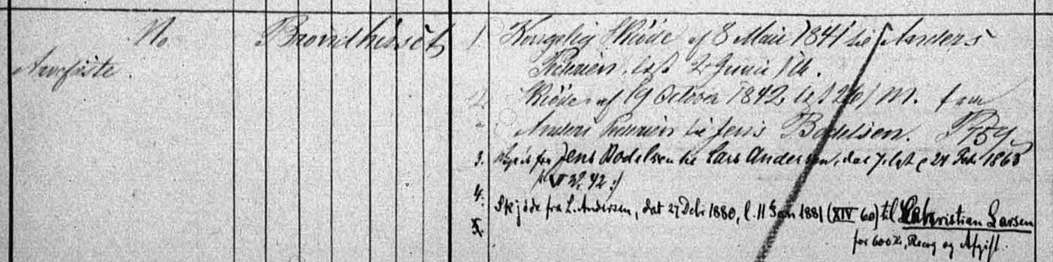 No Brondhuset 1 Kongelig Skiöde af 8 Mai 1841 til Anders
Arvefæste. Pedersen. læst 2 Juni s.A.
2 Skiöde af 19 October 1842, læst 26/ M. fra
Anders Pedersen til Jens Bodelsen. P 759
3. fra Jens Bodelsen til Lars Andersen, dat 7 lgt 24 Feb. 1863
42 :/
4. Skjøde fra L. Andersen, dat 27 Dcb 1880, l. 11 Jan 1881 (XIV 60) til Christian Larsen
5. for 600 Kr, Recog og Afgift.